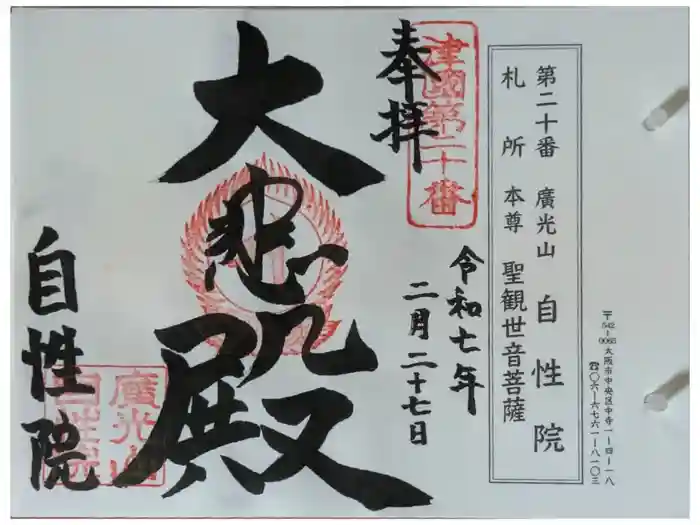 第二十番　廣光山　自性院
札所　本尊　聖観世音菩薩
〒542-0065 大阪市中央区中寺一ー四ー一八
☎〇六ー六七六一ー八一〇三
奉拝
津國第二十番
令和七年
二月二十七日
大悲殿
自性院
廣光山
自性院